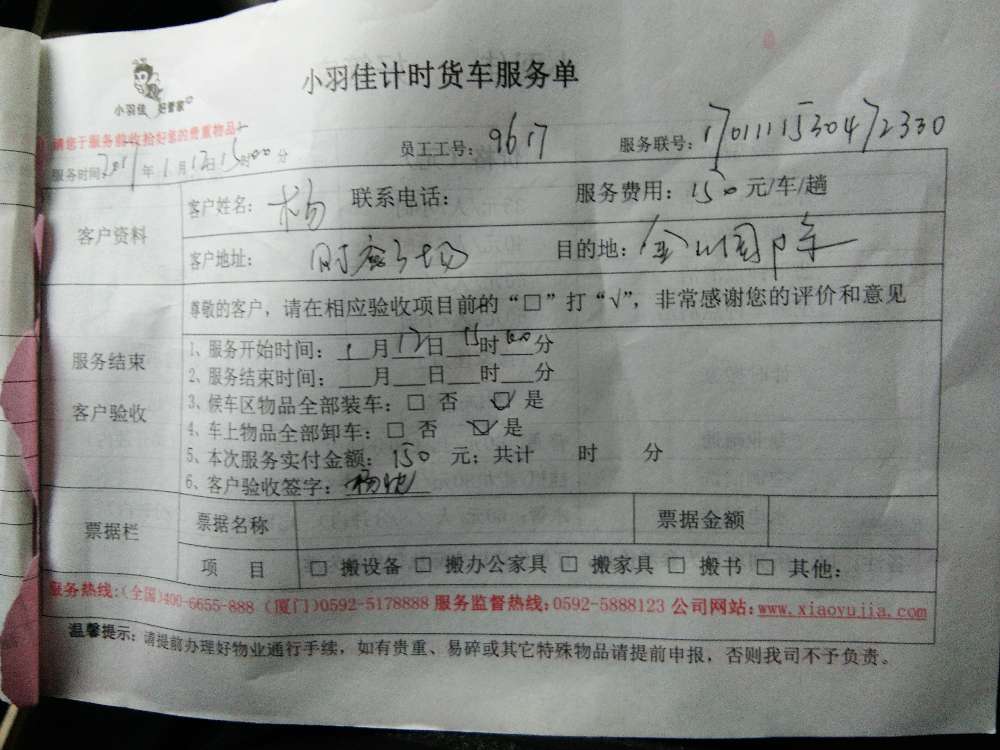 小羽佳 好管家
小羽佳计时货车服务单
请您于服务前收拾好您的贵重物品
服务时间:2017年1月12日15时00分 员工工号: 9617 服务联号: 170111153047 2330
客户资料
客户姓名: 杨 联系电话: 服务费用: 150 元/车/趟
客户地址: 财富广场 目的地:
尊敬的客户，请在相应验收项目前的“□”打“√”，非常感谢您的评价和意见
服务结束
客户验收
1、服务开始时间: 1月12日15时00分
2、服务结束时间: ___月___日___时___分
3、候车区物品全部装车: □ 否 ☑ 是
4、车上物品全部卸车: □ 否 ☑ 是
5、本次服务实付金额: 150 元; 共计 时 分
6、客户验收签字: 杨
票据栏
票据名称 票据金额
项 目 □ 搬设备 □ 搬办公家具 □ 搬家具 □ 搬书 □ 其他:
服务热线:(全国)400-6655-888 (厦门)0592-5178888 服务监督热线: 0592-5888123 公司网站: www.xiaoyujia.com
温馨提示: 请提前办理好物业通行手续，如有贵重、易碎或其它特殊物品请提前申报，否则我司不予负责。